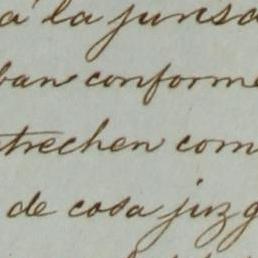 á la jurisd
ban conforme
trechen com
de cosa juzg